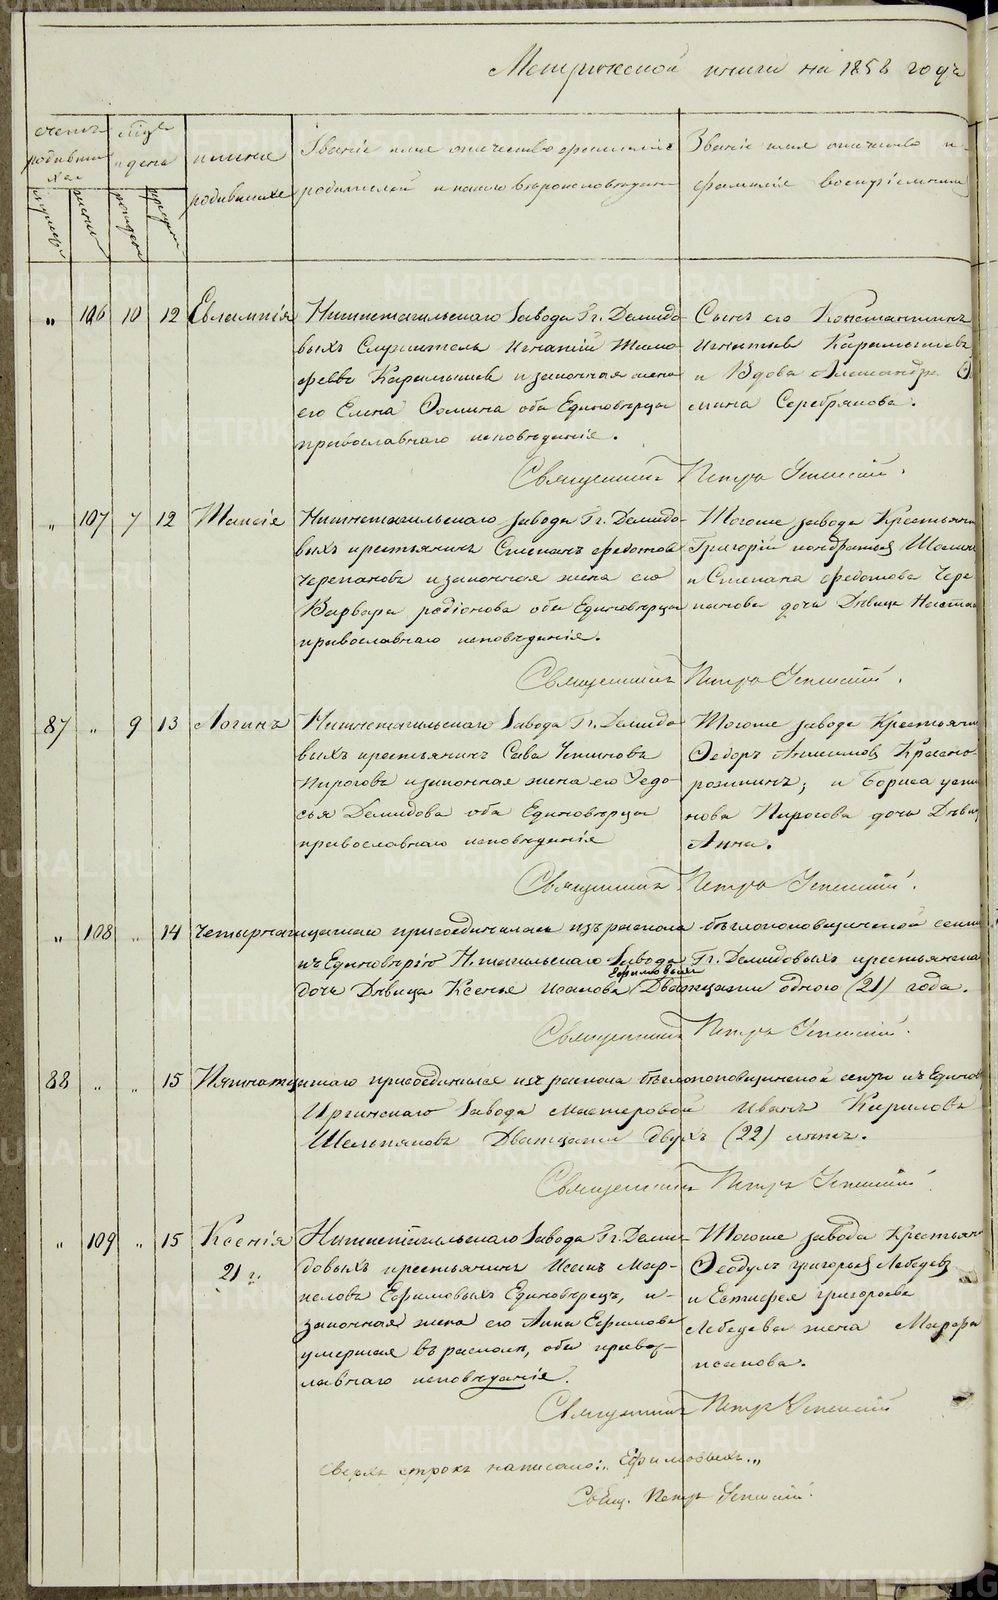 Метрической книги на 1858 годъ
счетъ родившихся
мѣсяцъ и день
имена родившихся
Званіе имя отечество и фамилія родителей и какого вѣроисповѣданія
Званіе имя отечество и фамилія воспріемниковъ
„ 106 10 12 Евлампія
Нижнетагильскаго Завода Гг. Демидо-
выхъ Служитель Игнатій Тимо-
феевъ Карамышев и законная жена
его Елена Фомина оба Единовѣрцы
православнаго исповѣданія.
Сынъ его Константинъ
Игнатьев Карамышевъ
и Вдова Александра
мина Серебрякова.
Священникъ Петръ Успенскій.
„ 107 7 12 Таисія
Нижнетагильскаго завода Гг. Демидо-
выхъ крестьянинъ Степанъ федотов
Черепановъ и законная жена его
Варвара родіонова оба Единовѣрцы
православнаго исповѣданія.
Тогоже завода Крестьянин
Григорій кондратьев
и Степана федотова Чере
панова дочь Дѣвица
Священникъ Петръ Успенскій.
87 „ 9 13 Логинъ
Нижнетагильскаго Завода Гг. Демидо-
выхъ крестьянинъ Сава Устиновъ
Пироговъ и законная жена его Федо-
сья Демидова оба Единовѣрцы
православнаго исповѣданія
Тогоже завода Крестьянин
Федоръ Анисимов Красно-
рожинъ; и Бориса усти
нова Пирогова дочь Дѣвиц
Анна.
Священникъ Петръ Успенскій.
„ 108 „ 14 Четырнатцатаго присоединилась изъ раскола бѣглопоповщинской секты
къ Единовѣрію Н.тагильскаго Завода Гг. Демидовыхъ крестьянина
Ефимовыхъ
дочь Дѣвица Ксенья Исакова Дватцати одного (21) года.
Священникъ Петръ Успенскій.
88 „ „ 15 Пятнатцатаго присоединился изъ раскола бѣглопоповщинской секты къ Единов
Иргинскаго Завода мастеровой Иванъ Кириловъ
Шелпяковъ Дватцати двухъ (22) лѣтъ.
Священникъ Петръ Успенскій
„ 109 „ 15 Ксенія
21 г.
Нижнетагильскаго Завода Гг. Деми-
довыхъ крестьянинъ Исакъ Мар-
келовъ Ефимовыхъ Единовѣрецъ, и
законная жена его Анна Ефимова
умершая въ расколѣ, оба правос-
лавнаго исповѣданія.
Тогоже завода Крестьянин
Феодулъ григорьев Лебедевъ
и Евтифея григорьева
Лебедева жена Марфа
исакова.
Священникъ Петръ Успенскій
Сверхъ строкъ написано: „Ефимовыхъ.„
Свящ. Петръ Успенскій.
METRIKI.GASO-URAL.RU